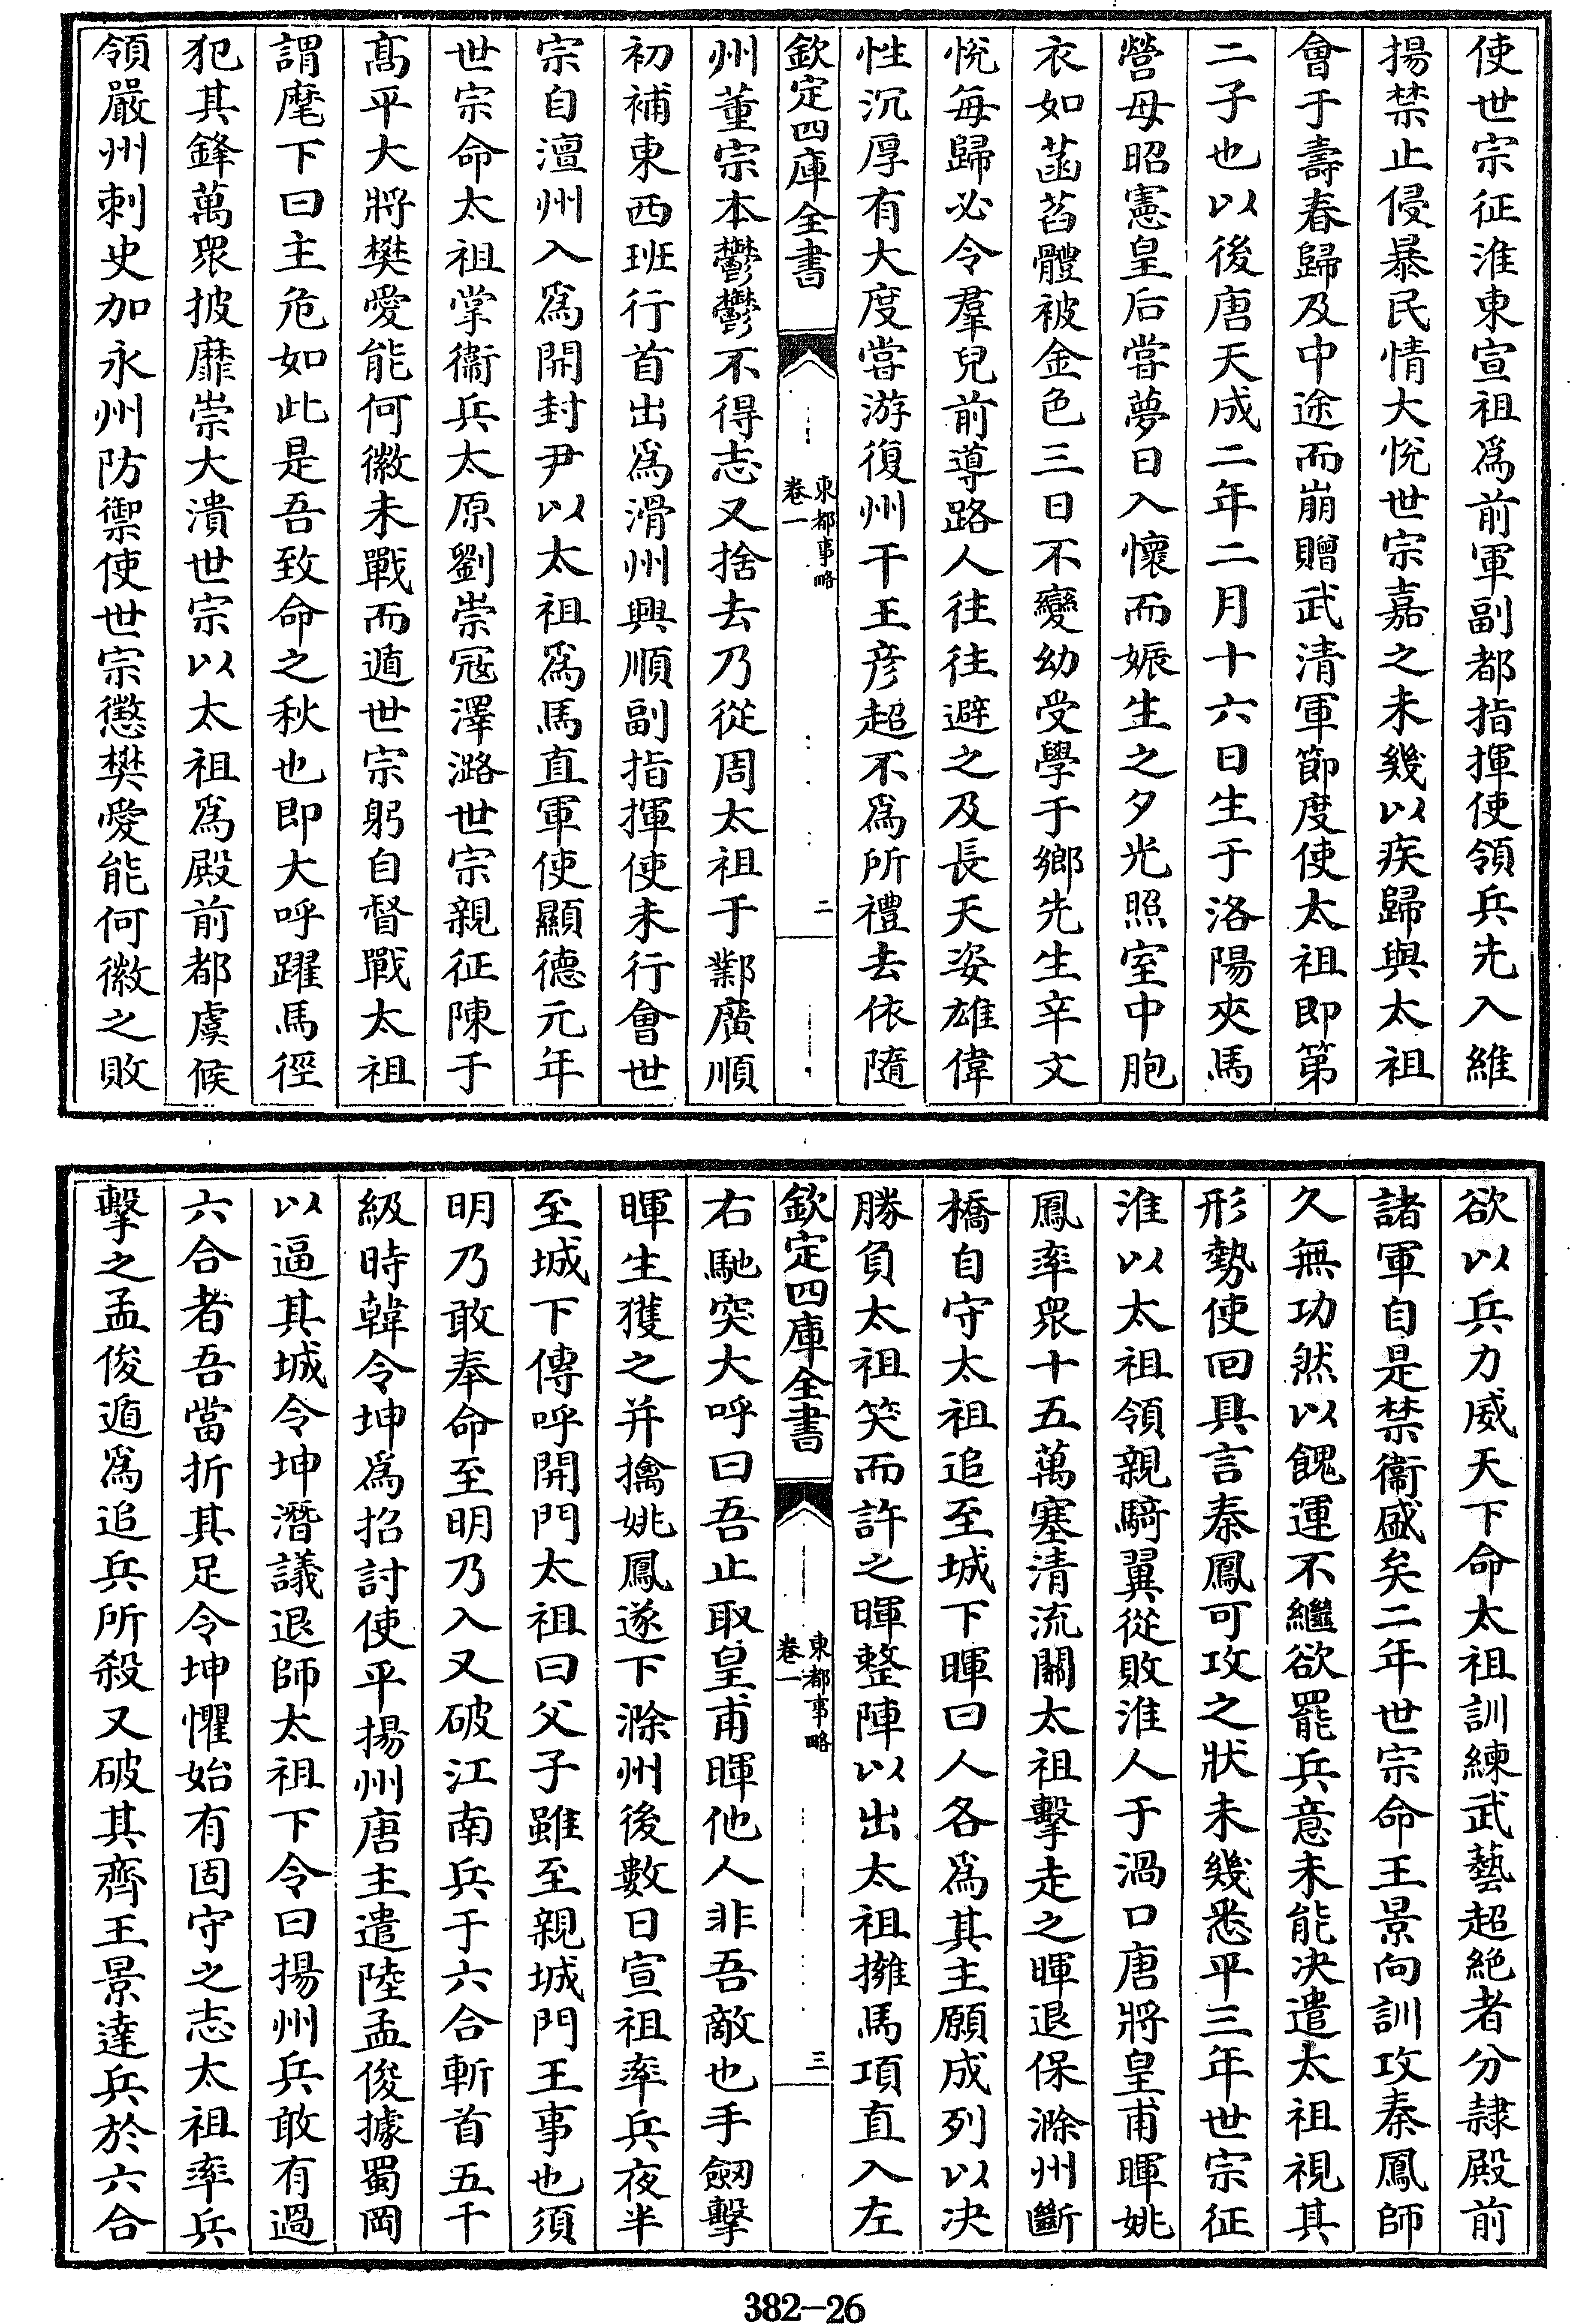 使世宗征淮東宣祖爲前軍副都指揮使領兵先入維
揚禁止侵暴民情大悅世宗嘉之未幾以疾歸與太祖
會于壽春歸及中途而崩贈武清軍節度使太祖即第
二子也以後唐天成二年二月十六日生于洛陽夾馬
營母昭憲皇后嘗夢日入懷而娠生之夕光照室中胞
衣如菡萏體被金色三日不變幼受學于鄉先生辛文
悅每歸必令羣兒前導路人往往避之及長天姿雄偉
性沉厚有大度嘗游復州干王彦超不爲所禮去依隨
欽定四庫全書
東都事略
卷一
二
州董宗本鬱鬱不得志又捨去乃從周太祖于鄴廣順
初補東西班行首出爲滑州興順副指揮使未行會世
宗自澶州入爲開封尹以太祖爲馬直軍使顯德元年
世宗命太祖掌衞兵太原劉崇冦澤潞世宗親征陳于
髙平大將樊愛能何徽未戰而遁世宗躬自督戰太祖
謂麾下曰主危如此是吾致命之秋也即大呼躍馬徑
犯其鋒萬衆披靡崇大潰世宗以太祖爲殿前都虞候
領嚴州刺史加永州防禦使世宗懲樊愛能何徽之敗
欲以兵力威天下命太祖訓練武藝超絶者分隷殿前
諸軍自是禁衞盛矣二年世宗命王景向訓攻秦鳳師
久無功然以餽運不繼欲罷兵意未能决遣太祖視其
形勢使回具言秦鳳可攻之狀未幾悉平三年世宗征
淮以太祖領親騎翼從敗淮人于渦口唐將皇甫暉姚
鳳率衆十五萬塞清流關太祖擊走之暉退保滁州斷
橋自守太祖追至城下暉曰人各爲其主願成列以决
勝負太祖笑而許之暉整陣以出太祖擁馬項直入左
欽定四庫全書
東都事略
卷一
三
右馳突大呼曰吾止取皇甫暉他人非吾敵也手劒擊
暉生獲之并擒姚鳳遂下滁州後數日宣祖率兵夜半
至城下傳呼開門太祖曰父子雖至親城門王事也須
明乃敢奉命至明乃入又破江南兵于六合斬首五千
級時韓令坤爲招討使平揚州唐主遣陸孟俊據蜀岡
以逼其城令坤潛議退師太祖下令曰揚州兵敢有過
六合者吾當折其足令坤懼始有固守之志太祖率兵
擊之孟俊遁爲追兵所殺又破其齊王景達兵於六合
382-26